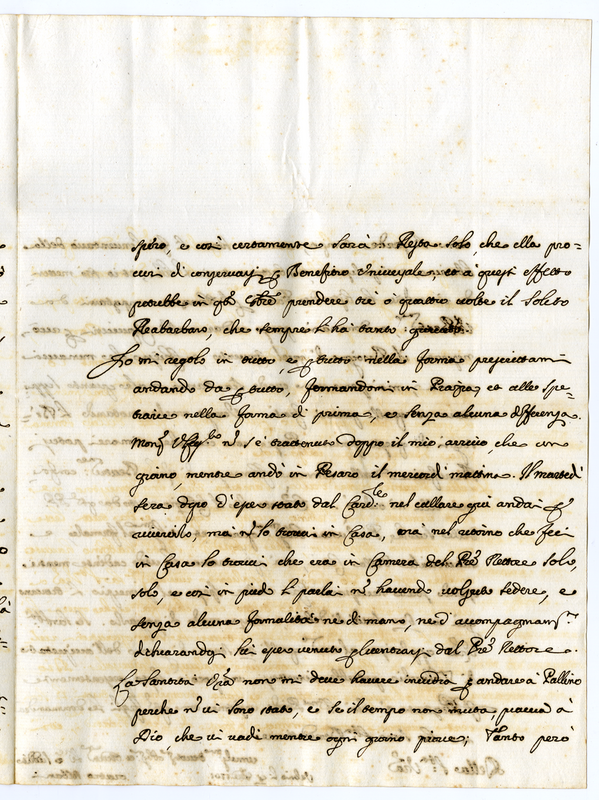 spero, e così certamente sarà. Resta solo, che ella pro=
curi di conservarsi p Benefitio Universale, et a questi effetto
potrebbe in qto prendere trè o quattro volte il solito
Reabarbaro, che sempre li ha tanto giovato.
Io mi regolo in tutto, e p tutto nella forma prescrittami
andando da p tutto, formandomi in Piazza, et alle Spe=
tiarie nella forma di prima, e senza alcuna differenza.
Monsr nò sè trattenuto doppo il mio arrivo, che un
giorno, mentre andò in Pesaro il mercordì mattina. Il martedì
sera dopo d'esse stato dal Cardle nel callare giù andai p
riverirlo, ma nò lo trovai in Casa, mà nel ritorno che feci
in Casa lo trovai che era in Camera del Pre Rettore solo,
solo, e così in piedi li parlai nò havendo voluto sedere, e
senza alcuna formalità ne di mano, ne d'accompagnamto
dichiarandosi di esse venuto p licentiarsi dal Pre Rettore.
La Santità Vra non mi deve havere invidia p andare à Pallino
perche nò vi sono stato, e se il tempo non muta, piaccia à
Dio, che vi vadi mentre ogni giorno piove; Tanto però